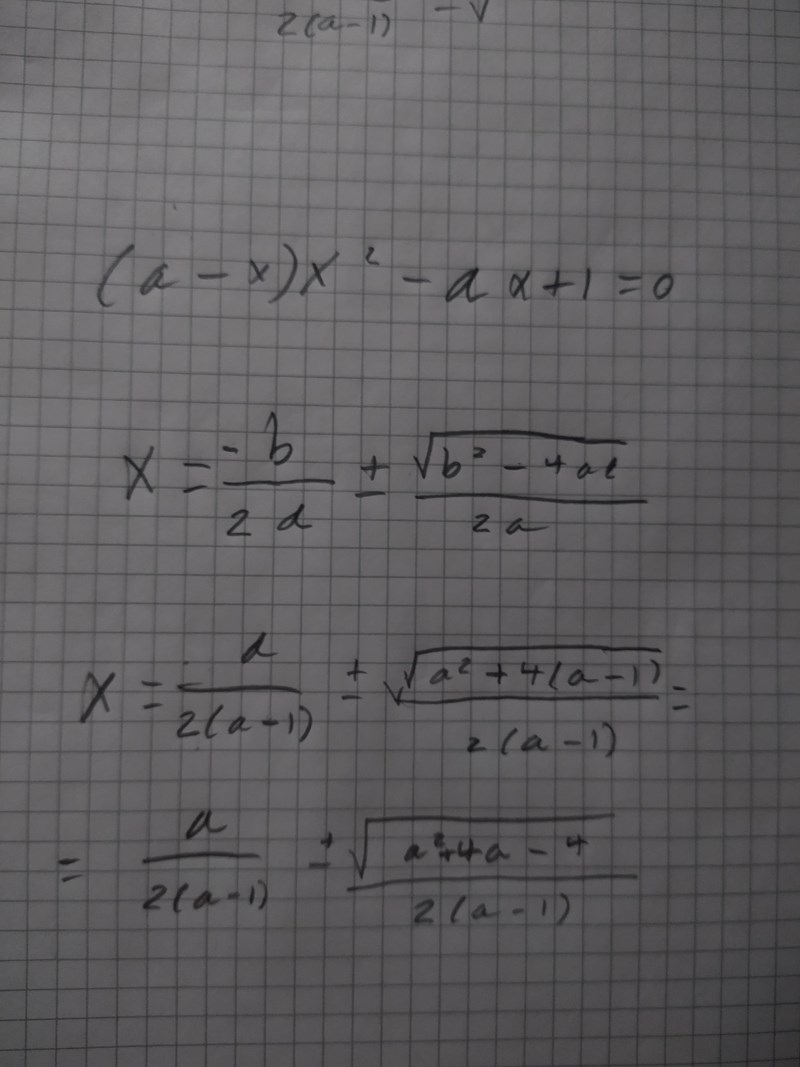 2(a-1) - √
(a - x)x² - a x + 1 = 0
x = -b/2a ± √(b² - 4ac)/2a
x = a/2(a-1) ± √(a² + 4(a-1))/2(a-1) =
= a/2(a-1) ± √(a² + 4a - 4)/2(a-1)